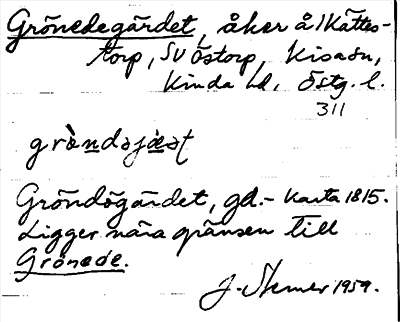 Grönedegärdet, åker å Kättes-
torp, SV Östorp, Kisa sn,
Kinda hd, Östg. l.
311
grö̀ndajæ̀t
Gröndögärdet, gd.- karta 1815.
Ligger nära gränsen till
Grönede.
J. 1959.